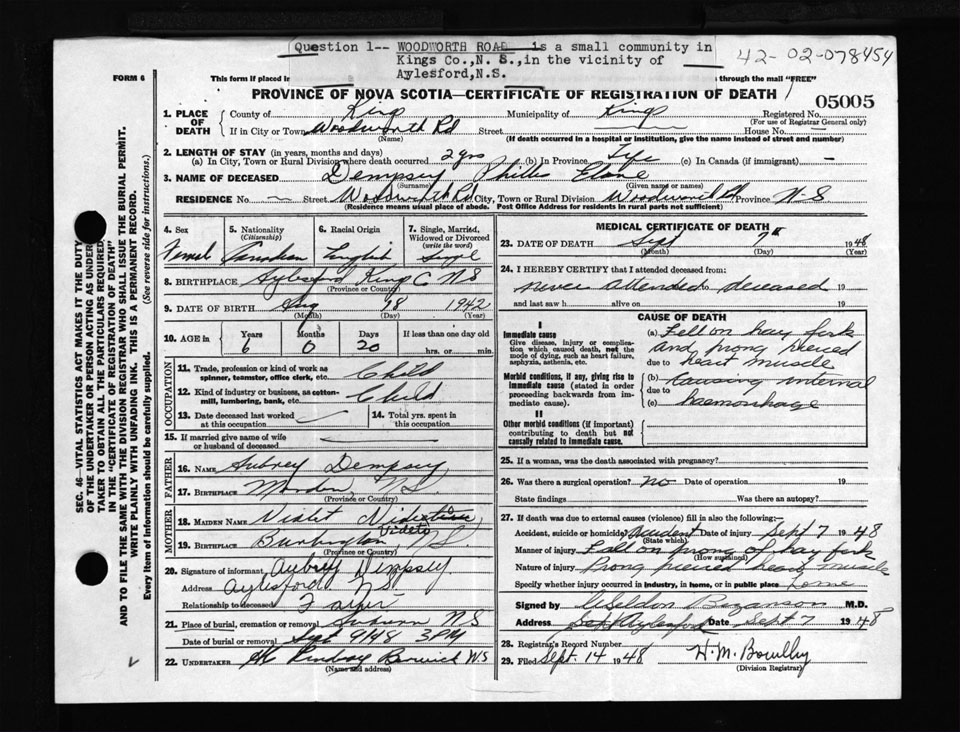 Question 1-- WOODWORTH ROAD is a small community in
Kings Co.,N. S.,in the vicinity of
Aylesford,N.S.
42-02-078454
FORM 6
This form if placed in through the mail "FREE"
PROVINCE OF NOVA SCOTIA—CERTIFICATE OF REGISTRATION OF DEATH
05005
1. PLACE OF DEATH
County of King Municipality of King Registered No.
(For use of Registrar General only)
If in City or Town Woodworth Rd Street House No.
(Name) (If death occurred in a hospital or institution, give the name instead of street and number)
2. LENGTH OF STAY (in years, months and days)
(a) In City, Town or Rural Division where death occurred 2 yrs (b) In Province Life (c) In Canada (if immigrant) —
3. NAME OF DECEASED Dempsey Phillis
(Surname) (Given name or names)
RESIDENCE No. — Street Woodworth Rd City, Town or Rural Division Province N-S
(Residence means usual place of abode. Post Office Address for residents in rural parts not sufficient)
4. Sex 5. Nationality (Citizenship) 6. Racial Origin 7. Single, Married, Widowed or Divorced (write the word)
Femal Canadian English
8. BIRTHPLACE Aylesford King C NS
(Province or Country)
9. DATE OF BIRTH Aug 18 1942
(Month) (Day) (Year)
10. AGE in Years Months Days If less than one day old
6 0 20 hrs. or min.
OCCUPATION
11. Trade, profession or kind of work as spinner, teamster, office clerk, etc. Child
12. Kind of industry or business, as cotton-mill, lumbering, bank, etc. Child
13. Date deceased last worked at this occupation 14. Total yrs. spent in this occupation
15. If married give name of wife or husband of deceased
FATHER
16. NAME Aubrey Dempsey
17. BIRTHPLACE Morden, N.S.
(Province or Country)
MOTHER
18. MAIDEN NAME Violet
Videto
19. BIRTHPLACE Burlington
(Province or Country)
20. Signature of informant Aubrey Dempsey
Address Aylesford N.S.
Relationship to deceased
21. Place of burial, cremation or removal Auburn NS
Date of burial or removal Sept 9/48 3PM
22. UNDERTAKER Lindsay Berwick NS
(Name and address)
MEDICAL CERTIFICATE OF DEATH
23. DATE OF DEATH Sept 7th 1948
(Month) (Day) (Year)
24. I HEREBY CERTIFY that I attended deceased from:
never attended to deceased 19
and last saw h alive on 19
CAUSE OF DEATH
I
Immediate cause
Give disease, injury or complication which caused death, not the mode of dying, such as heart failure, asphyxia, asthenia, etc.
(a) Fell on hay fork
and prong pierced
due to heart muscle
Morbid conditions, if any, giving rise to immediate cause (stated in order proceeding backwards from immediate cause).
(b) Causing internal
due to
(c) haemorrhage
II
Other morbid conditions (if important) contributing to death but not causally related to immediate cause.
25. If a woman, was the death associated with pregnancy?
26. Was there a surgical operation? no Date of operation 19
State findings Was there an autopsy?
27. If death was due to external causes (violence) fill in also the following:-
Accident, suicide or homicide? Accident Date of injury Sept 7 1948
(State which)
Manner of injury Fall on prong of hay fork
(How sustained)
Nature of injury Prong pierced heart muscle
Specify whether injury occurred in industry, in home, or in public place Home
Signed by M.D.
Address Date Sept 7 1948
28. Registrar's Record Number
29. Filed Sept. 14 1948
(Division Registrar)
SEC. 46—VITAL STATISTICS ACT MAKES IT THE DUTY
OF THE UNDERTAKER OR PERSON ACTING AS UNDERTAKER TO OBTAIN ALL THE PARTICULARS REQUIRED
IN THE "CERTIFICATE OF REGISTRATION OF DEATH"
AND TO FILE THE SAME WITH THE DIVISION REGISTRAR WHO SHALL ISSUE THE BURIAL PERMIT.
WRITE PLAINLY WITH UNFADING INK. THIS IS A PERMANENT RECORD.
Every item of information should be carefully supplied. (See reverse side for instructions.)